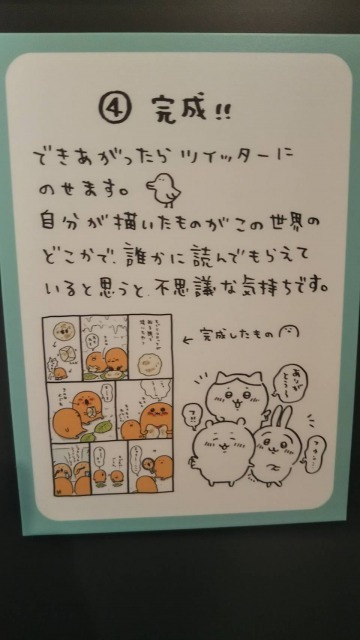 ④ 完成!!
できあがったら ツイッターに
のせます。
自分が描いたものがこの世界の
どこかで、誰かに読んでもらえて
いると思うと、不思議な気持ちです。
← 完成したもの
ありがところ〜
ワ!!